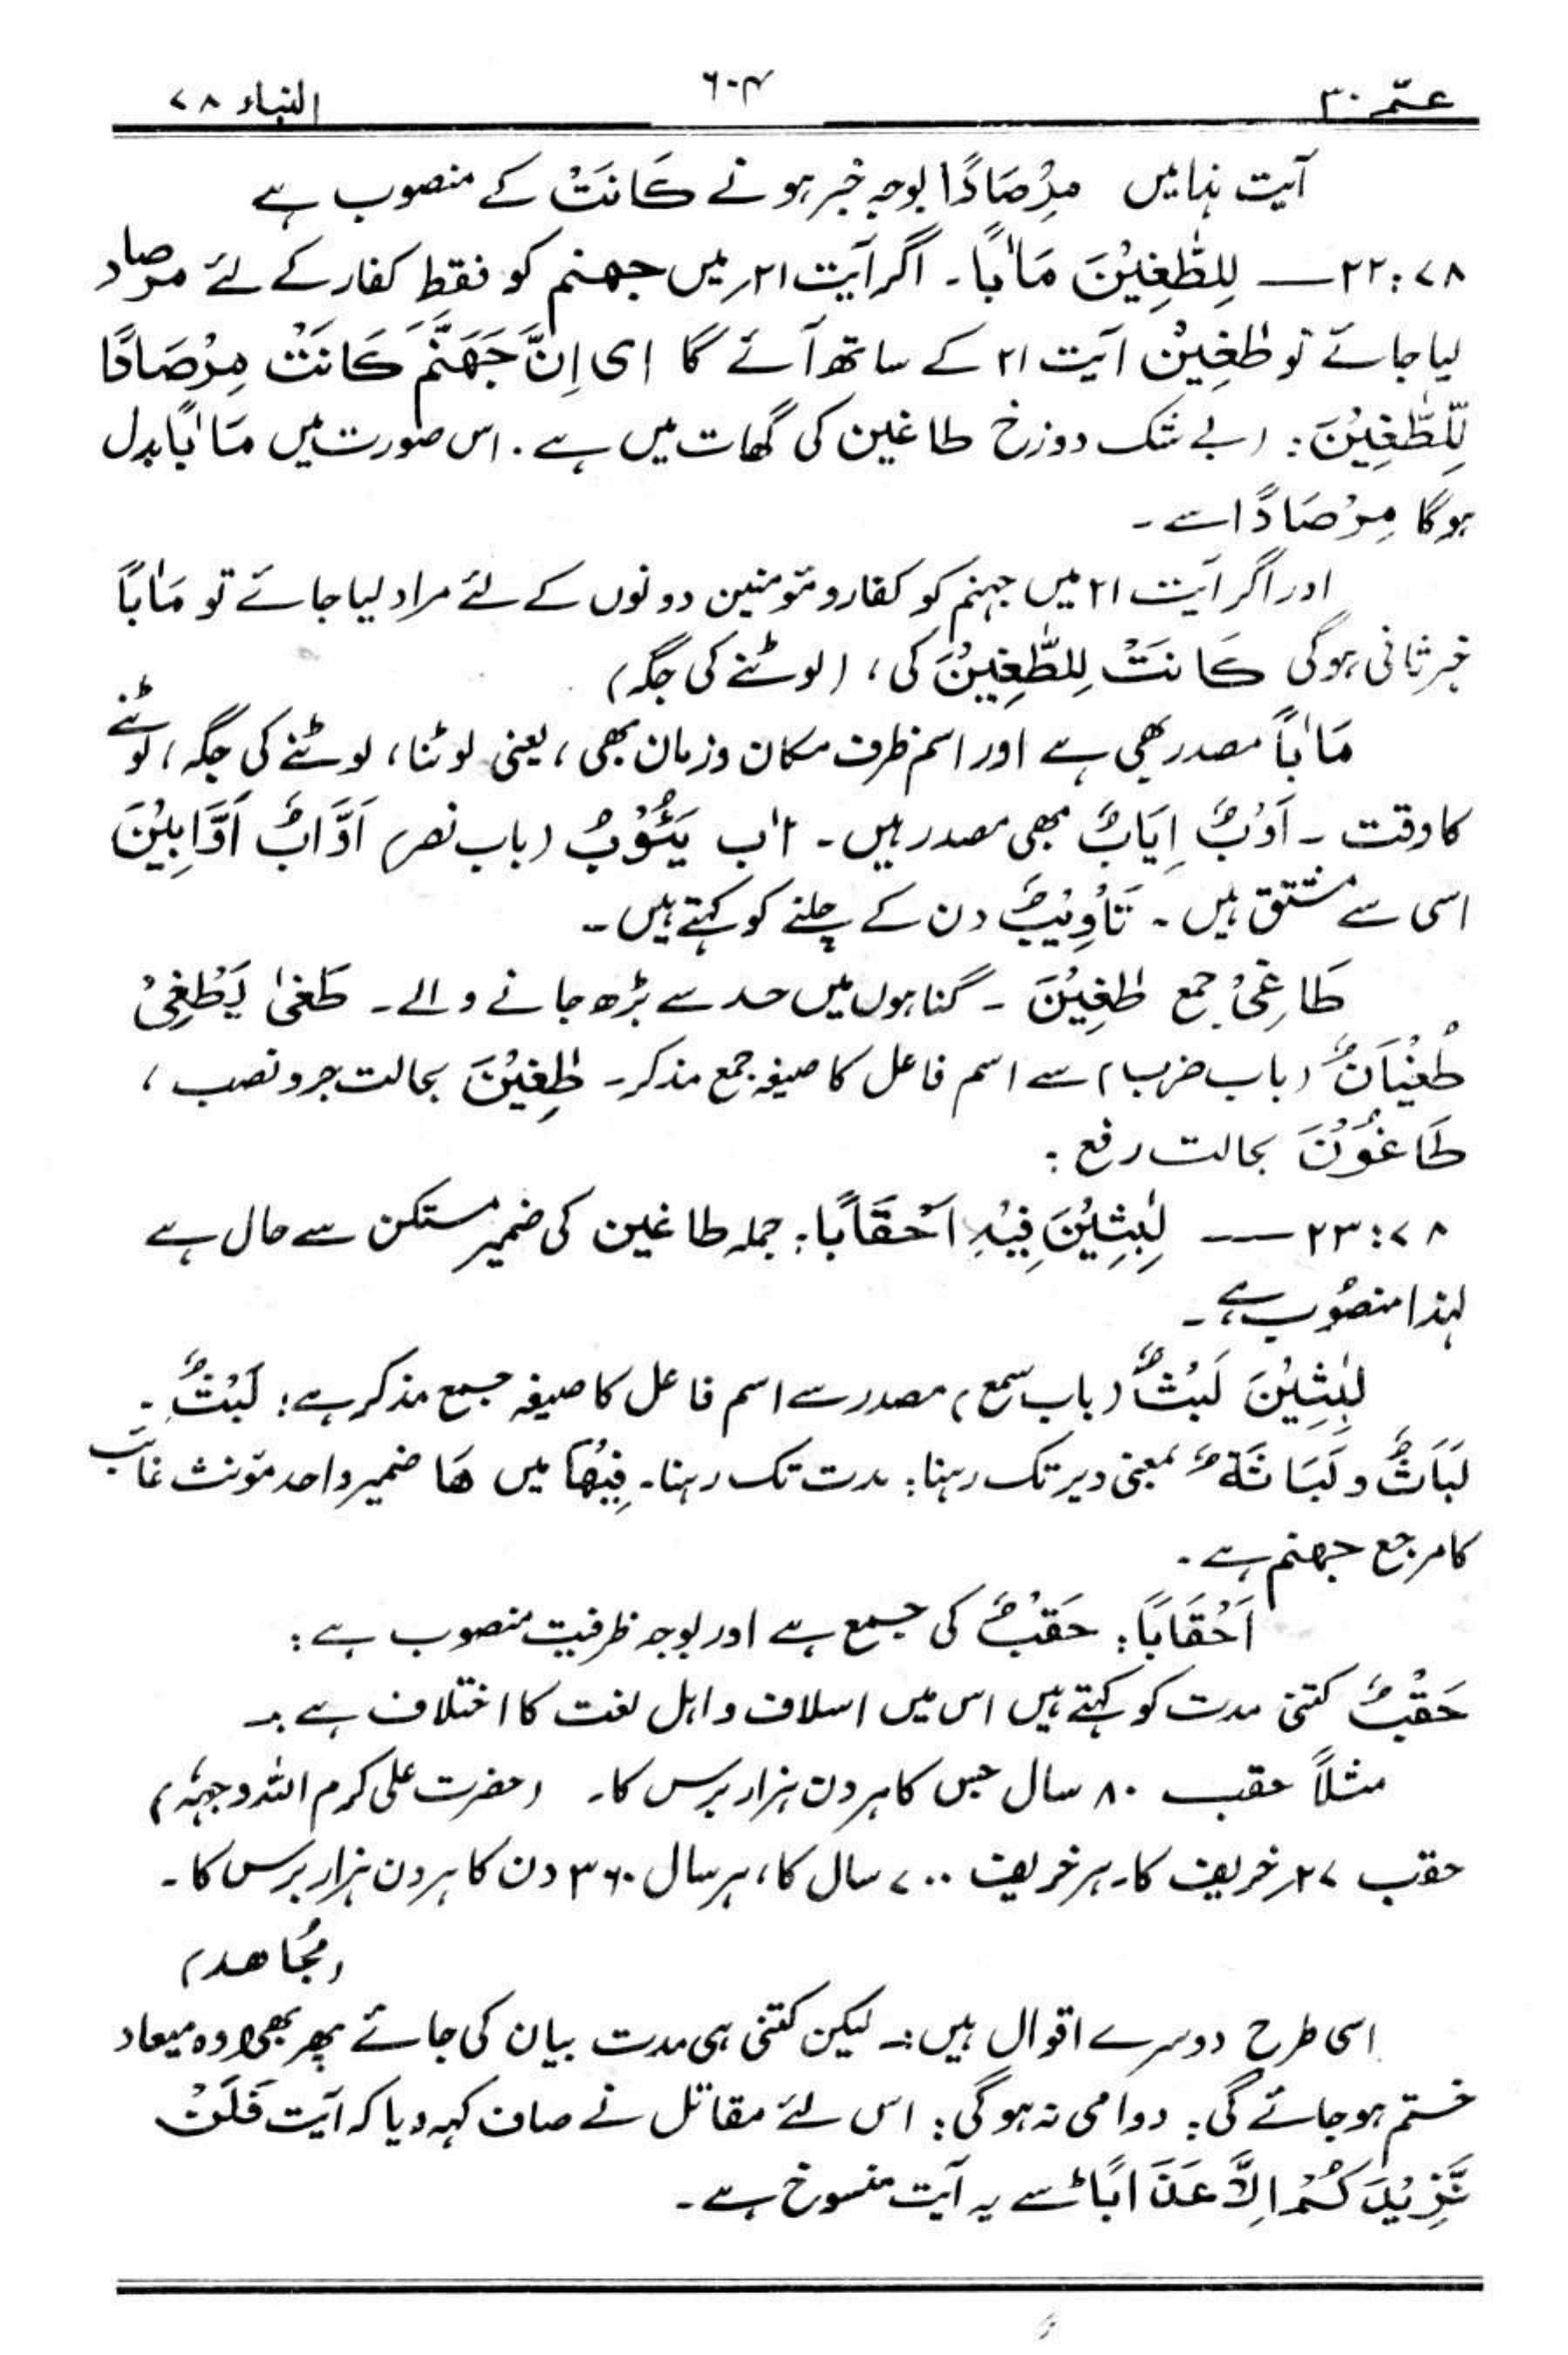 عمّ ۳۰ ۶۰۴ النباء ۷۸
آیت ہذا میں مِرْصَادًا بوجہ خبر ہونے کَانَتْ کے منصوب ہے
۷۸:۲۲ــــ لِلطّٰغِیْنَ مَاٰبًا۔ اگر آیت ۲۱ میں جہنم کو فقط کفار کے لئے مرصاد
لیا جائے تو طٰغِیْنَ آیت ۲۱ کے ساتھ آئے گا ای اِنَّ جَهَنَّمَ كَانَتْ مِرْصَادًا
لِّلطّٰغِیْنَ: (بے شک دوزخ طاغین کی گھات میں ہے۔ اس صورت میں مَاٰبًا بدل
ہوگا مِرْصَادًا سے۔
اور اگر آیت ۲۱ میں جہنم کو کفار و مؤمنین دونوں کے لئے مراد لیا جائے تو مَاٰبًا
خبر ثانی ہوگی کَانَتْ لِلطّٰغِیْنَ کی، (لوٹنے کی جگہ)
مَاٰبًا مصدر بھی ہے اور اسم ظرف مکان و زمان بھی، یعنی لوٹنا، لوٹنے کی جگہ، لوٹنے
کا وقت۔ اَوْبٌ اِیَابٌ بھی مصدر ہیں۔ اٰب یَئُوْبُ (باب نصر) اَوَّابٌ اَوَّابِیْنَ
اسی سے مشتق ہیں۔ تَأْوِیْبٌ دن کے چلنے کو کہتے ہیں۔
طَاغِیْ جمع طٰغِیْنَ۔ گناہوں میں حد سے بڑھ جانے والے۔ طَغٰی یَطْغِیْ
طُغْیَانٌ (باب ضرب) سے اسم فاعل کا صیغہ جمع مذکر۔ طٰغِیْنَ بحالت جر و نصب،
طَاغُوْنَ بحالت رفع:
۷۸:۲۳ــــ لٰبِثِیْنَ فِیْهِ اَحْقَابًا: جملہ طاغین کی ضمیر مستکن سے حال ہے
لہذا منصوب ہے۔
لٰبِثِیْنَ لَبْثٌ (باب سمع) مصدر سے اسم فاعل کا صیغہ جمع مذکر ہے: لَبْثٌ۔
لَبَاثٌ و لَبَاثَةٌ بمعنی دیر تک رہنا: مدت تک رہنا۔ فِیْهَا میں ھَا ضمیر واحد مؤنث غائب
کا مرجع جہنم ہے۔
اَحْقَابًا: حَقْبٌ کی جمع ہے اور بوجہ ظرفیت منصوب ہے:
حَقْبٌ کتنی مدت کو کہتے ہیں اس میں اسلاف و اہل لغت کا اختلاف ہے :۔
مثلاً حقب ۸۰ سال جس کا ہر دن ہزار برس کا۔ (حضرت علی کرم اللہ وجہہٗ)
حقب ۲۷ خریف کا۔ ہر خریف ۷۰۰ سال کا، ہر سال ۳۶۰ دن کا ہر دن ہزار برس کا۔
(مُجَاهد)
اسی طرح دوسرے اقوال ہیں :۔ لیکن کتنی ہی مدت بیان کی جائے پھر بھی وہ میعاد
ختم ہو جائے گی: دوامی نہ ہوگی: اس لئے مقاتل نے صاف کہہ دیا کہ آیت فَلَنْ
نَّزِیْدَكُمْ اِلَّا عَذَابًا سے یہ آیت منسوخ ہے۔